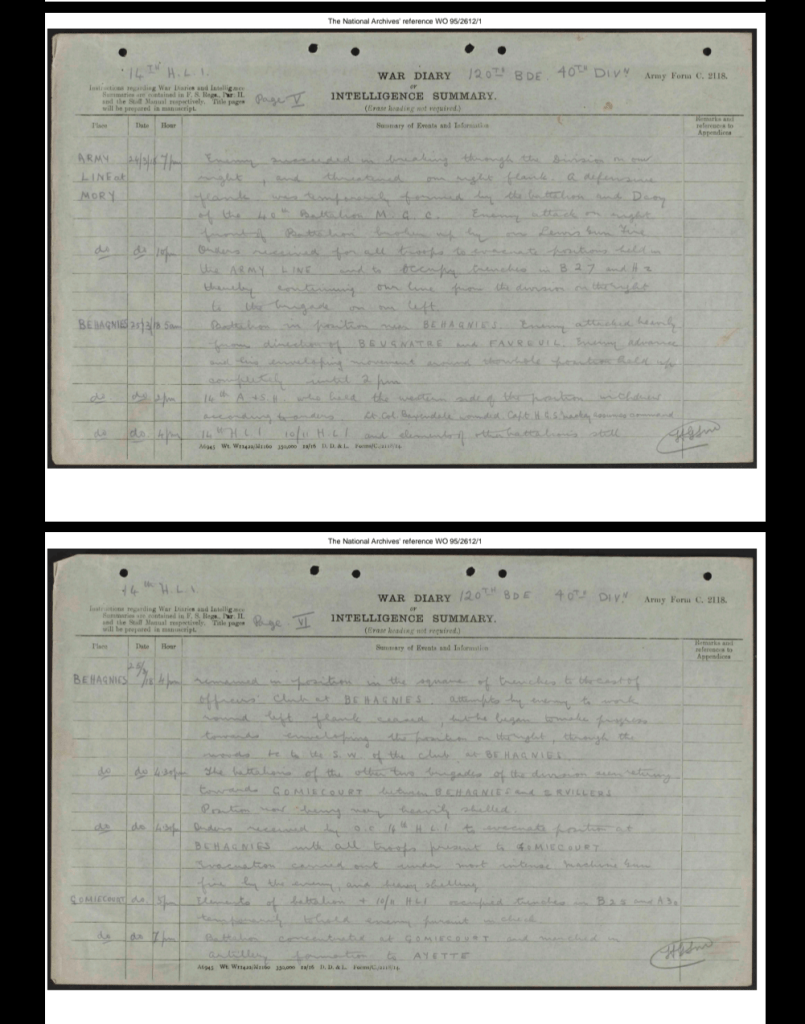 The National Archives' reference WO 95/2612/1
14TH H.L.I.
WAR DIARY 120TH BDE 40TH DIVY Army Form C. 2118.
or
Instructions regarding War Diaries and Intelligence
Summaries are contained in F. S. Regs., Part II.
and the Staff Manual respectively. Title pages
will be prepared in manuscript.
Page V
INTELLIGENCE SUMMARY.
(Erase heading not required.)
Place Date Hour Summary of Events and Information Remarks and
references to
Appendices
ARMY 24/3/18 7pm Enemy succeeded in breaking through the Division on our
LINE at right, and threatened our right flank. A defensive
MORY flank was temporarily formed by the battalion and
of the 40th Battalion M.G.C. Enemy attack on right
front of Battalion broken up by our Lewis Gun fire
do do 10pm Orders received for all troops to evacuate positions held in
the ARMY LINE and to occupy trenches in B 27 and H 2
thereby continuing our line from the division on the right
to the brigade on our left
BEHAGNIES 25/3/18 5am Battalion in position near BEHAGNIES. Enemy attacked heavily
from direction of BEUGNATRE and FAVREUIL. Enemy advance
and his enveloping movement around position held up
completely until 2 pm
do do 2pm 14th A & S.H. who held the western side of the position withdrew
according to orders Lt Col wounded Capt H.C.S. assumes command
do do 4pm 14TH H L I 10/11 H.L.I and elements of other battalions still
The National Archives' reference WO 95/2612/1
14th H.L.I.
WAR DIARY 120TH BDE 40TH DIVY Army Form C. 2118.
or
Instructions regarding War Diaries and Intelligence
Summaries are contained in F. S. Regs., Part II.
and the Staff Manual respectively. Title pages
will be prepared in manuscript.
Page VI
INTELLIGENCE SUMMARY.
(Erase heading not required.)
Place Date Hour Summary of Events and Information Remarks and
references to
Appendices
BEHAGNIES 25/3/18 4pm remained in position in the square of trenches to the east of
Officers' Club at BEHAGNIES. Attempts by enemy to work
round left flank ceased, but he began to make progress
towards enveloping the position on the right, through the
to the S.W. of the Club at BEHAGNIES.
do do 4.20pm The battalions of the other two brigades of the division seen retiring
towards GOMIECOURT between BEHAGNIES and
Position now being very heavily shelled.
do do 4.30pm Orders received by O.C. 14th H.L.I to evacuate position at
BEHAGNIES with all troops present to GOMIECOURT
Evacuation carried out under most intense machine gun
fire by the enemy, and heavy shelling
GOMIECOURT do 5pm Elements of battalion + 10/11 HLI occupied trenches in and
temporarily to hold enemy pursuit in check
do do 7pm Battalion concentrated at GOMIECOURT and marched in
artillery formation to AYETTE